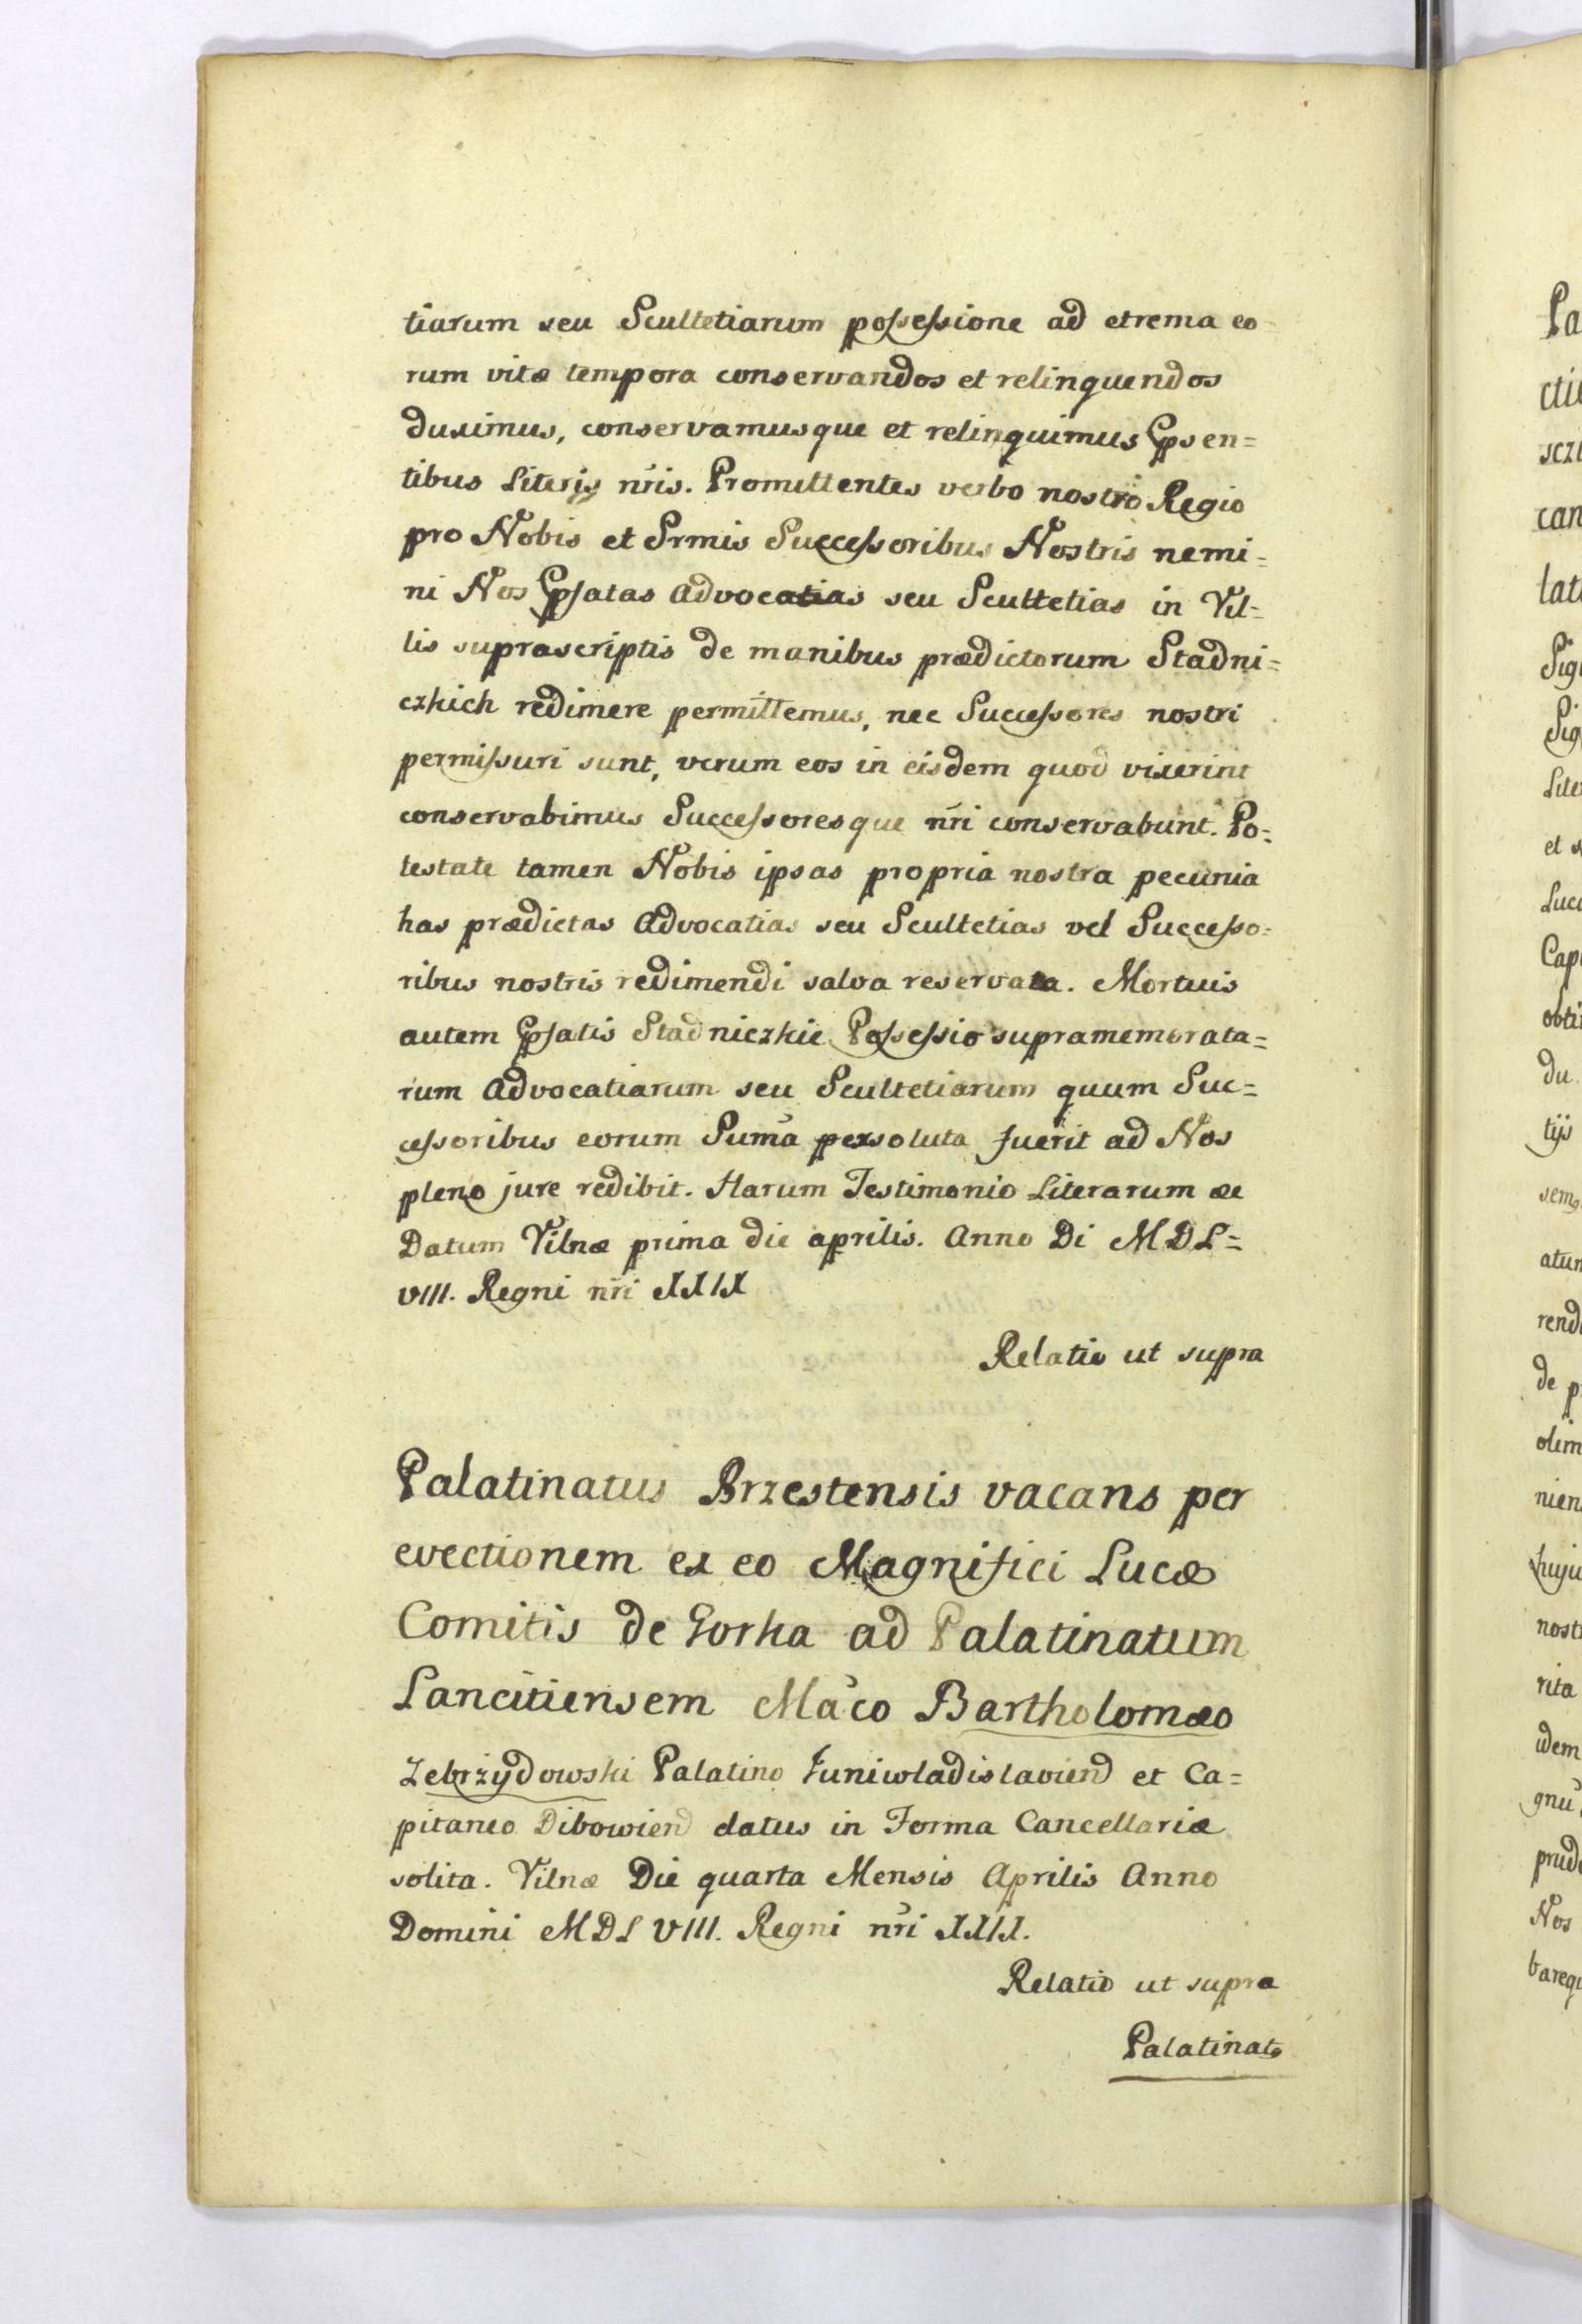 tiarum seu Scultetiarum possessione ad etrema eo
rum vitæ tempora conservandos et relinquendos
duximus, conservamusque et relinquimus Ppsen=
tibus Literis nr̃is. Promittentes verbo nostro Regio
pro Nobis et Srmis Successoribus Nostris nemi=
ni Nos Ppsatas Advocatias seu Scultetias in Vil=
lis suprascriptis de manibus prædictorum Stadni=
czkich redimere permittemus, nec Successores nostri
permissuri sunt, verum eos in eisdem quod vixerint
conservabimus Successoresque nr̃i conservabunt. Po=
testate tamen Nobis ipsas propria nostra pecunia
has prædictas Advocatias seu Scultetias vel Successo=
ribus nostris redimendi salva reservata. Mortuis
autem Ppsatis Stadniczkie Possessio supramemorata=
rum Advocatiarum seu Scultetiarum quum Suc=
cessoribus eorum Sum̃a persoluta fuerit ad Nos
pleno jure redibit. Harum Testimonio Literarum æe
Datum Vilnæ prima die aprilis. Anno Di MDL=
VIII. Regni nr̃i XXIX
Relatio ut supra
Palatinatus Brzestensis vacans per
evectionem ex eo Magnifici Lucæ
Comitis de Gorka ad Palatinatum
Lancitiensem Ma͠co Bartholomæo
Zebrzÿdowski Palatino Juniwladislaviend et Ca=
pitaneo Dibowiend datus in Forma Cancellariæ
solita. Vilnæ Die quarta Mensis Aprilis Anno
Domini MDLVIII. Regni nr̃i XXIX.
Relatio ut supra
Palatinat9
Pa
cti
sczi
can
lat
Sig
Sig
Lite
et
Succ
Capi
obti
du
tijs
sem
atum
rend
de p
olim
nien
huju
nost
rita
idem
gnu
prud
Nos
barequ